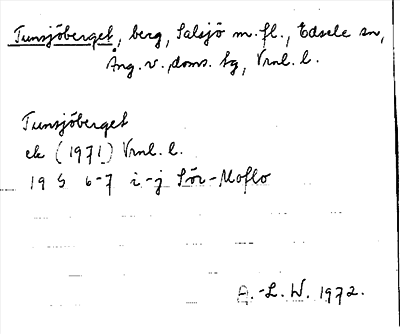 Tunsjöberget, berg, Salsjö m.fl., Edsele sn,
Ång. v. doms. tg, Vrnl. l.
Tunsjöberget
ek (1971) Vrnl. l.
19 G 6-7 i-j Sör-Moflo
A.-L. W. 1972.